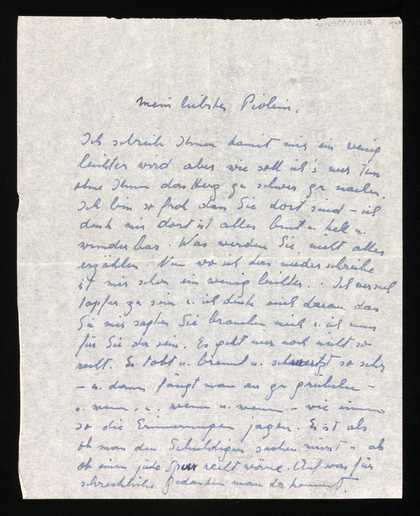 mein liebster Piolein.
Ich schreibe Ihnen damit mir ein wenig
leichter wird aber wie soll ich's nur tun
ohne Ihnen das Herz zu schwer zu machen.
Ich bin so froh dass Sie dort sind - ich
denk mir dort ist alles bunt u. hell u.
wunderbar. Was werden Sie nicht alles
erzählen. Nun wo ich das niederschreibe
ist mir schon ein wenig leichter. Ich versuch
tapfer zu sein u. ich denk auch daran dass
Sie mir sagten Sie brauchen mich u. ich muss
für Sie da sein. Es geht nur noch nicht so
recht. Es tobt u. brennt u. schmerzt so sehr
- u. dann fängt man an zu grübeln -
u. wenn u. wenn u. wenn - wie einen
so die Erinnerungen jagen. Es ist als
ob man den Schuldigen suchen müsst - als
ob einem jede Spur recht wäre. Auf was für
schreckliche Gedanken man da kommt.